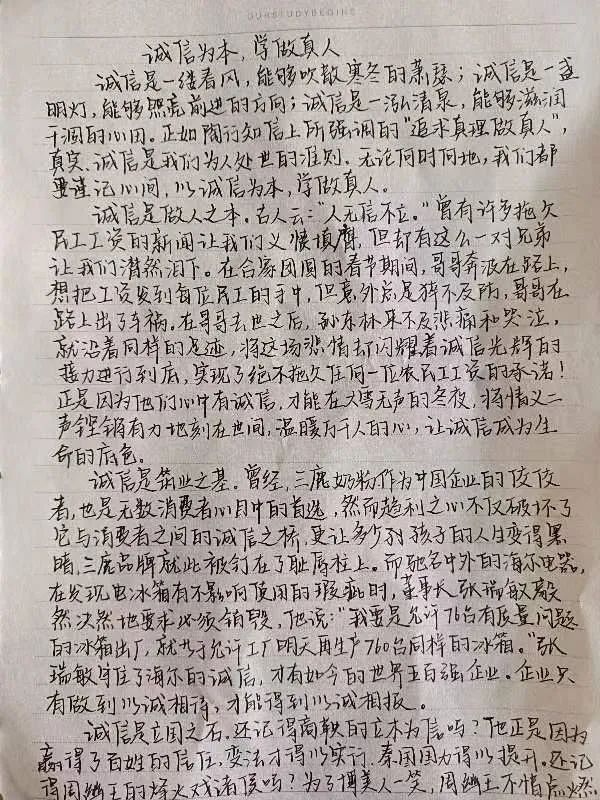 OURSTUDYBEGINS
诚信为本，学做真人
诚信是一缕春风，能够吹散寒冬的萧瑟；诚信是一盏
明灯，能够照亮前进的方向；诚信是一泓清泉，能够滋润
干涸的心田。正如陶行知信上所强调的“追求真理做真人”，
真实、诚信是我们为人处世的准则。无论何时何地，我们都
要谨记心间，以诚信为本，学做真人。
诚信是做人之本。古人云：“人无信不立。”曾有许多拖欠
民工工资的新闻让我们义愤填膺，但却有这么一对兄弟
让我们潸然泪下。在合家团圆的春节期间，哥哥奔波在路上，
想把工资发到每位民工的手中，但意外总是猝不及防，哥哥在
路上出了车祸。在哥哥去世之后，孙东林来不及悲痛和哭泣，
就沿着同样的足迹，将这场悲情却闪耀着诚信光辉的
接力进行到底，实现了绝不拖欠任何一位农民工工资的承诺！
正是因为他们心中有诚信，才能在大雪无声的冬夜，将情义二
声铿锵有力地刻在世间，温暖万千人的心，让诚信成为生
命的底色。
诚信是筑业之基。曾经，三鹿奶粉作为中国企业的佼佼
者，也是无数消费者心目中的首选，然而趋利之心不仅破坏了
它与消费者之间的诚信之桥，更让多少孩子的人生变得黑
暗，三鹿品牌就此被钉在了耻辱柱上。而驰名中外的海尔电器，
在发现电冰箱有不影响使用的瑕疵时，董事长张瑞敏毅
然决然地要求必须销毁，他说：“我要是允许76台有质量问题
的冰箱出厂，就等于允许工厂明天再生产760台同样的冰箱。”张
瑞敏守住了海尔的诚信，才有如今的世界五百强企业。企业只
有做到以诚相待，才能得到以诚相报。
诚信是立国之石。还记得商鞅的立木为信吗？他正是因为
赢得了百姓的信任，变法才得以实行，秦国国力得以提升。还记
得周幽王的烽火戏诸侯吗？为了博美人一笑，周幽王不惜点燃